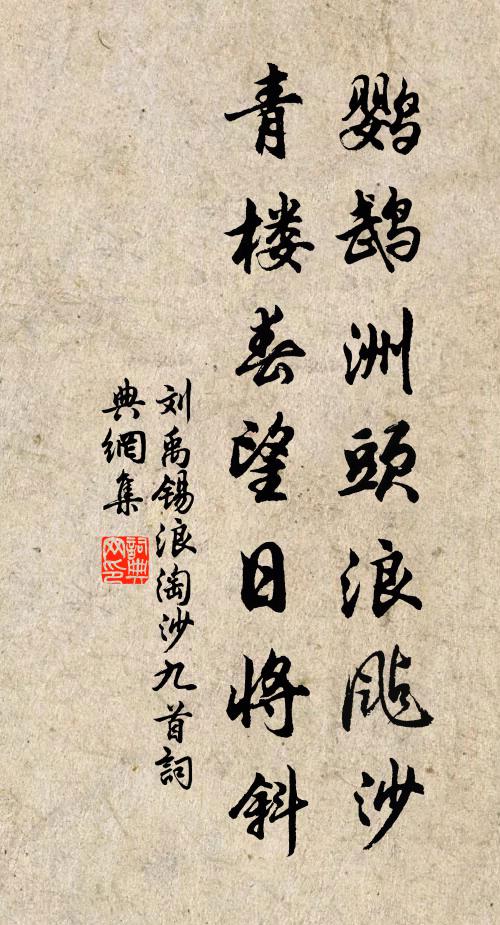 鹦鹉洲頭浪颭沙
青楼春望日將斜
刘禹锡浪淘沙九首詞
典網集
詞典
网印